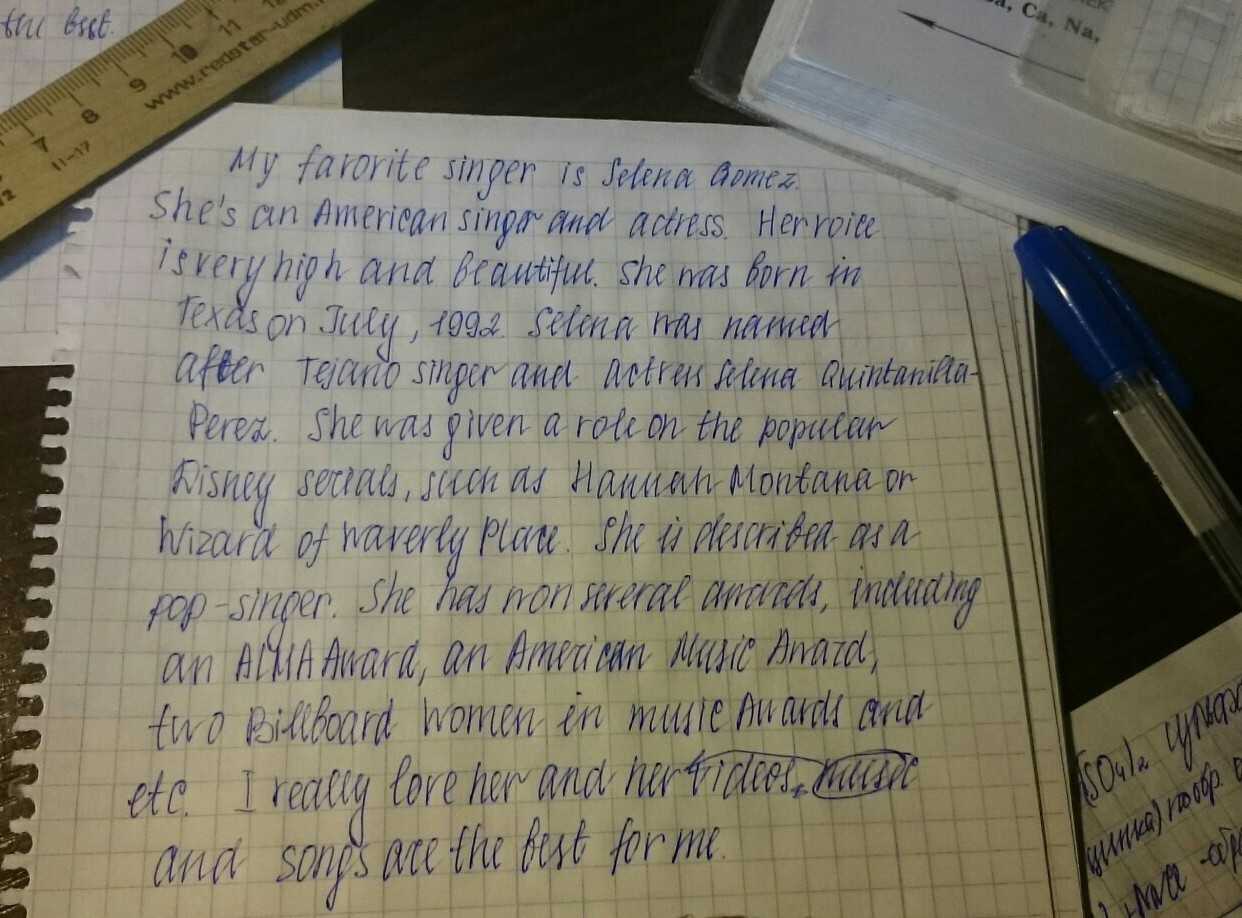 the best.
7 8 9 10 11
www.redstar-udm.
11-17
Ca, Na,
My favorite singer is Selena Gomez.
She's an American singer and actress. Her voice
is very high and beautiful. She was born in
Texas on July, 1992. Selena was named
after Tejano singer and actress Selena Quintanilla-
Perez. She was given a role on the popular
Disney serials, such as Hannah Montana or
Wizard of Waverly Place. She is described as a
pop-singer. She has won several awards, including
an ALMA Award, an American Music Award,
two Billboard Women in music Awards and
etc. I really love her and her videos, music
and songs are the best for me.